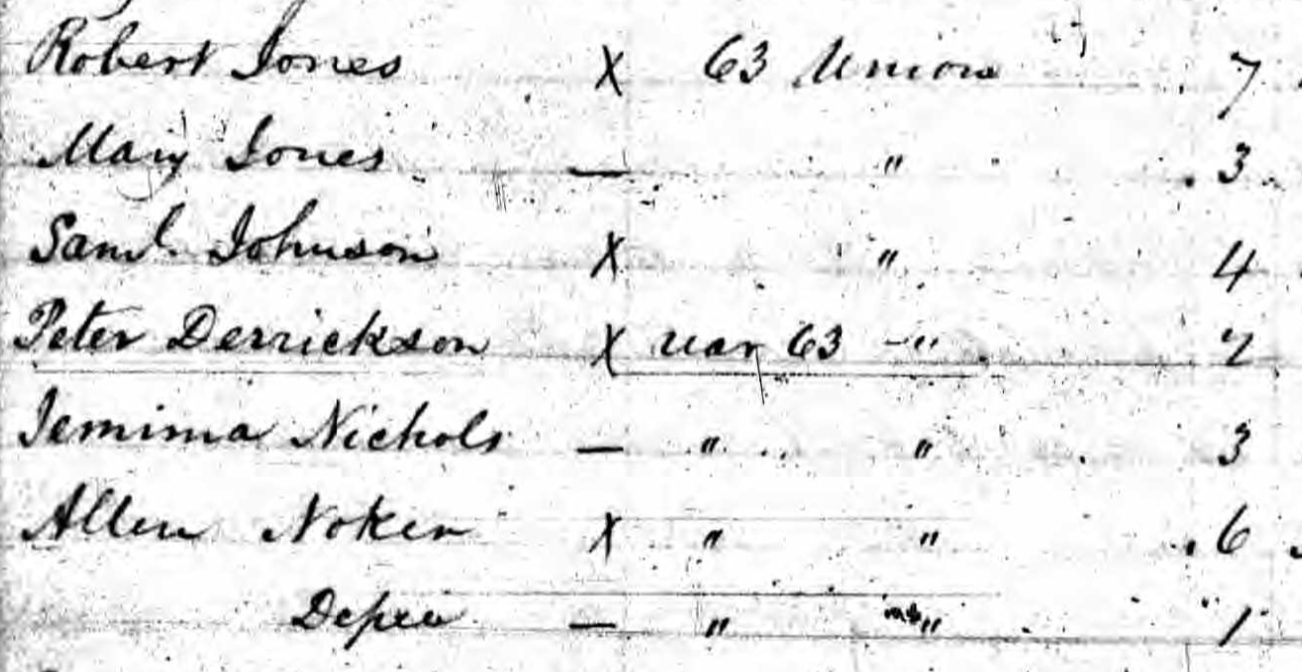 Robert Jones X 63 Union 7
Mary Jones — " 3
Saml. Johnson X " 4
Peter Derrickson X 63 — "
Jemima Nichols — " " 3
Allen Noker X " " 6
— " " 1